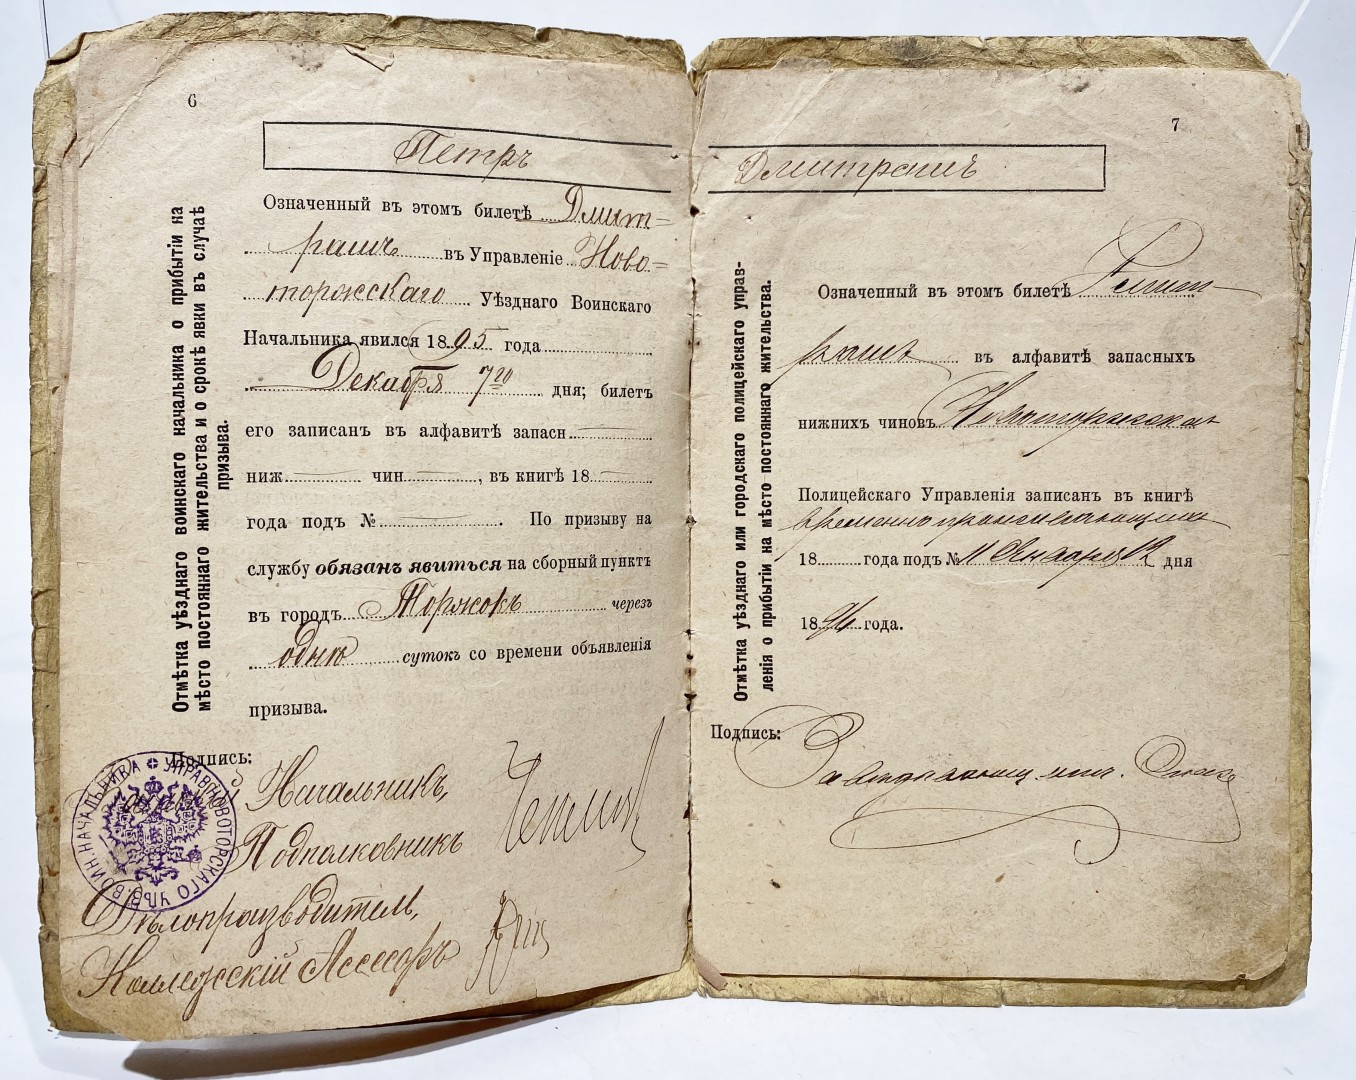 6
Петръ
Отмѣтка уѣзднаго воинскаго начальника о прибытіи на
мѣсто постояннаго жительства и о срокѣ явки въ случаѣ
призыва.
Означенный въ этомъ билетѣ Дмит-
въ Управленіе Ново-
торжскаго Уѣзднаго Воинскаго
Начальника явился 1895 года
Декабря 7го дня; билетъ
его записанъ въ алфавитѣ запасн
ниж чин , въ книгѣ 18
года подъ № . По призыву на
службу обязанъ явиться на сборный пунктъ
въ городъ Торжокъ через
одни сутокъ со времени объявленія
призыва.
Подпись:
Начальникъ,
Подполковникъ
Дѣлопроизводитель,
Коллежскій Ассесоръ
УПРАВ. НОВОТОРСКАГО УѢЗ. ВОИН. НАЧАЛЬНИКА
7
Отмѣтка уѣзднаго или городскаго полицейскаго управ-
ленія о прибытіи на мѣсто постояннаго жительства.
Означенный въ этомъ билетѣ
въ алфавитѣ запасныхъ
нижнихъ чиновъ Новоторжскаго
Полицейскаго Управленія записанъ въ книгѣ
временно проживающихъ
18 года подъ № 11 Января 12 дня
1896 года.
Подпись: